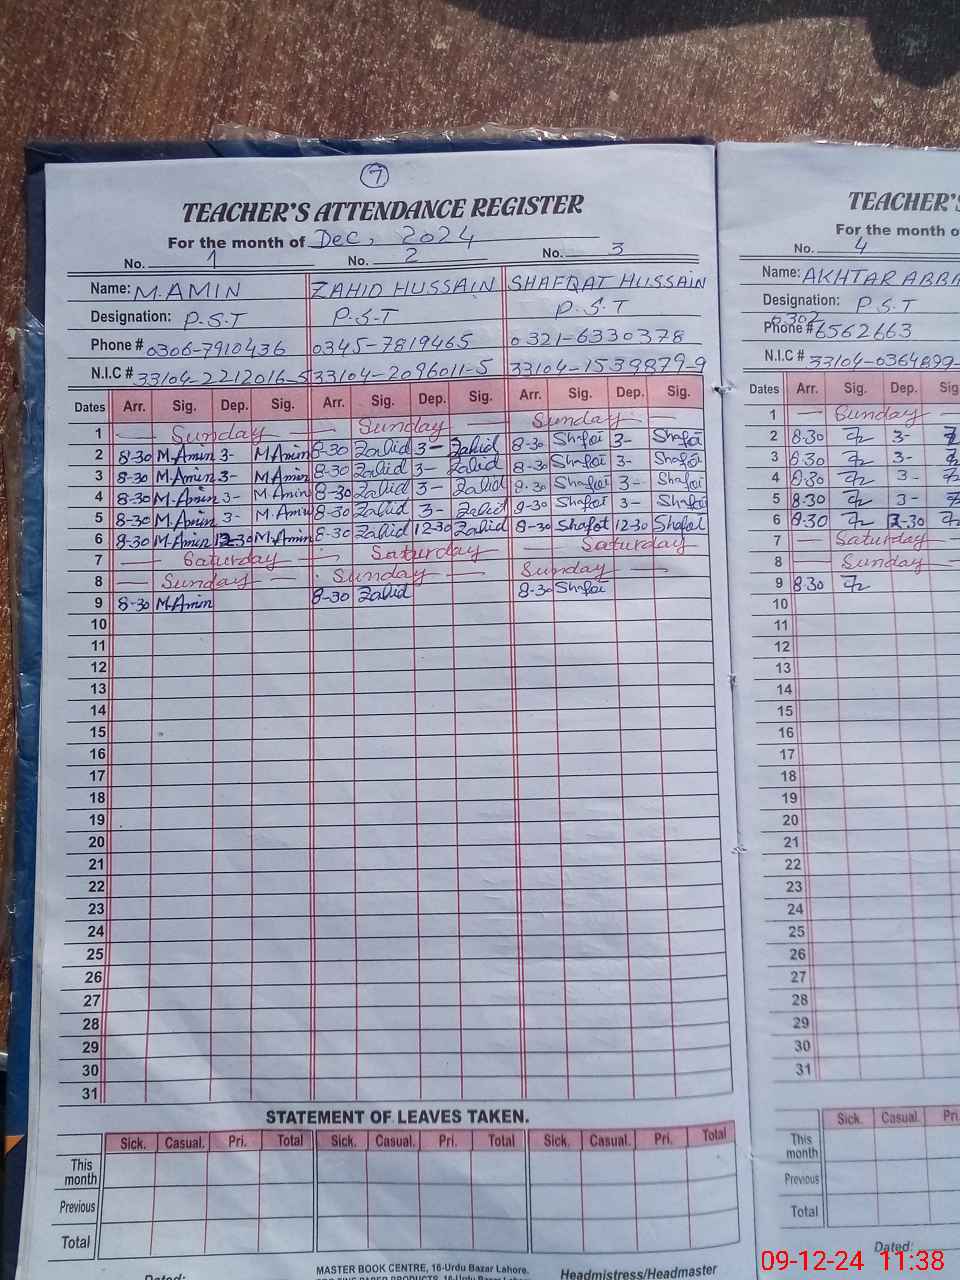 7
TEACHER'S ATTENDANCE REGISTER
For the month of Dec, 2024
No. 1 No. 2 No. 3
Name: M.AMIN ZAHID HUSSAIN SHAFQAT HUSSAIN
Designation: P.S.T P.S.T P.S.T
Phone # 0306-7910436 0345-7819465 0321-6330378
N.I.C # 33104-2212016-5 33104-2096011-5 33104-1539879-9
Dates Arr. Sig. Dep. Sig. Arr. Sig. Dep. Sig. Arr. Sig. Dep. Sig.
1 — Sunday — — Sunday — — Sunday —
2 8-30 M.Amin 3- M.Amin 8-30 Zahid 3- Zahid 8-30 Shafqat 3- Shafqat
3 8-30 M.Amin 3- M.Amin 8-30 Zahid 3- Zahid 8-30 Shafqat 3- Shafqat
4 8-30 M.Amin 3- M.Amin 8-30 Zahid 3- Zahid 8-30 Shafqat 3- Shafqat
5 8-30 M.Amin 3- M.Amin 8-30 Zahid 3- Zahid 8-30 Shafqat 3- Shafqat
6 8-30 M.Amin 12-30 M.Amin 8-30 Zahid 12-30 Zahid 8-30 Shafqat 12-30 Shafqat
7 — Saturday — Saturday — Saturday
8 — Sunday — Sunday — Sunday —
9 8-30 M.Amin 8-30 Zahid 8-30 Shafqat
10
11
12
13
14
15
16
17
18
19
20
21
22
23
24
25
26
27
28
29
30
31
STATEMENT OF LEAVES TAKEN.
Sick. Casual. Pri. Total Sick. Casual. Pri. Total Sick. Casual. Pri. Total
This month
Previous
Total
MASTER BOOK CENTRE, 16-Urdu Bazar Lahore.
PAPER PRODUCTS, 16-Urdu Bazar Lahore
Dated: Headmistress/Headmaster
TEACHER'S
For the month o
No. 4
Name: AKHTAR ABBA
Designation: P.S.T
Phone # 0302 6562663
N.I.C # 33104-0364899-
Dates Arr. Sig. Dep. Sig.
1 — Sunday —
2 8-30 3-
3 8-30 3-
4 8-30 3-
5 8-30 3-
6 8-30 12-30
7 — Saturday —
8 — Sunday —
9 8-30
10
11
12
13
14
15
16
17
18
19
20
21
22
23
24
25
26
27
28
29
30
31
Sick. Casual. Pri.
This month
Previous
Total
Dated:
09-12-24 11:38